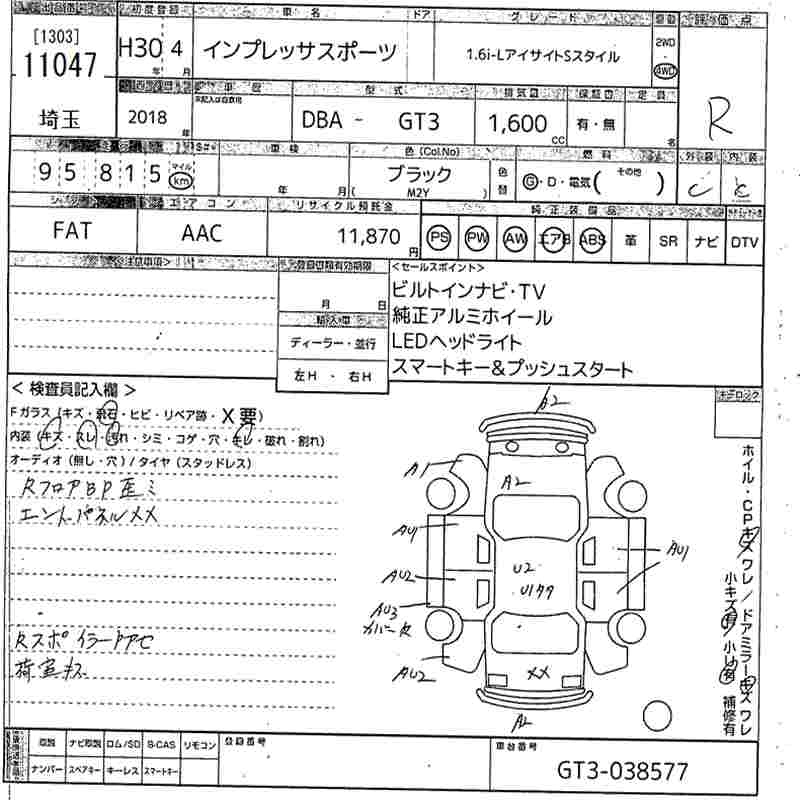 初度登録 車名 ドア グレード 評価点
[1303]
11047
H30 年 4 月
インプレッサスポーツ
1.6i-LアイサイトSスタイル
2WD
・
4WD
R
埼玉
2018 年
型式
DBA - GT3
排気量
1,600 CC
有・無
定員
名
95815 マイル km
車検
年 月
色 (Col.No)
ブラック
(M2Y)
色替
燃料
G・D・電気( その他 )
外装 内装
C C
エアコン リサイクル預託金 純正装備品
FAT
AAC
11,870 円
PS PW AW エアB ABS 革 SR ナビ DTV
<注意事項>
登録書類有効期限
月 日
輸入車
ディーラー・並行
左H ・ 右H
<セールスポイント>
ビルトインナビ・TV
純正アルミホイール
LEDヘッドライト
スマートキー&プッシュスタート
< 検査員記入欄 >
Fガラス (キズ・飛石・ヒビ・リペア跡・X要)
内装 (キズ・スレ・汚れ・シミ・コゲ・穴・キレ・破れ・割れ)
オーディオ (無し・穴) / タイヤ (スタッドレス)
RフロアBP歪ミ
エンドパネルXX
Rスポイラー
荷室キズ
A1
A2
AU1
AU1
AU2
U2
AU3
カバー欠
AU2
XX
A2
ホイル・CPキズワレ / ドアミラーキズワレ
小キズ有 小凹有 補修有
取説 ナビ取説 ロム/SD B-CAS リモコン
ナンバー スペアキー キーレス スマートキー
登録番号
車台番号
GT3-038577